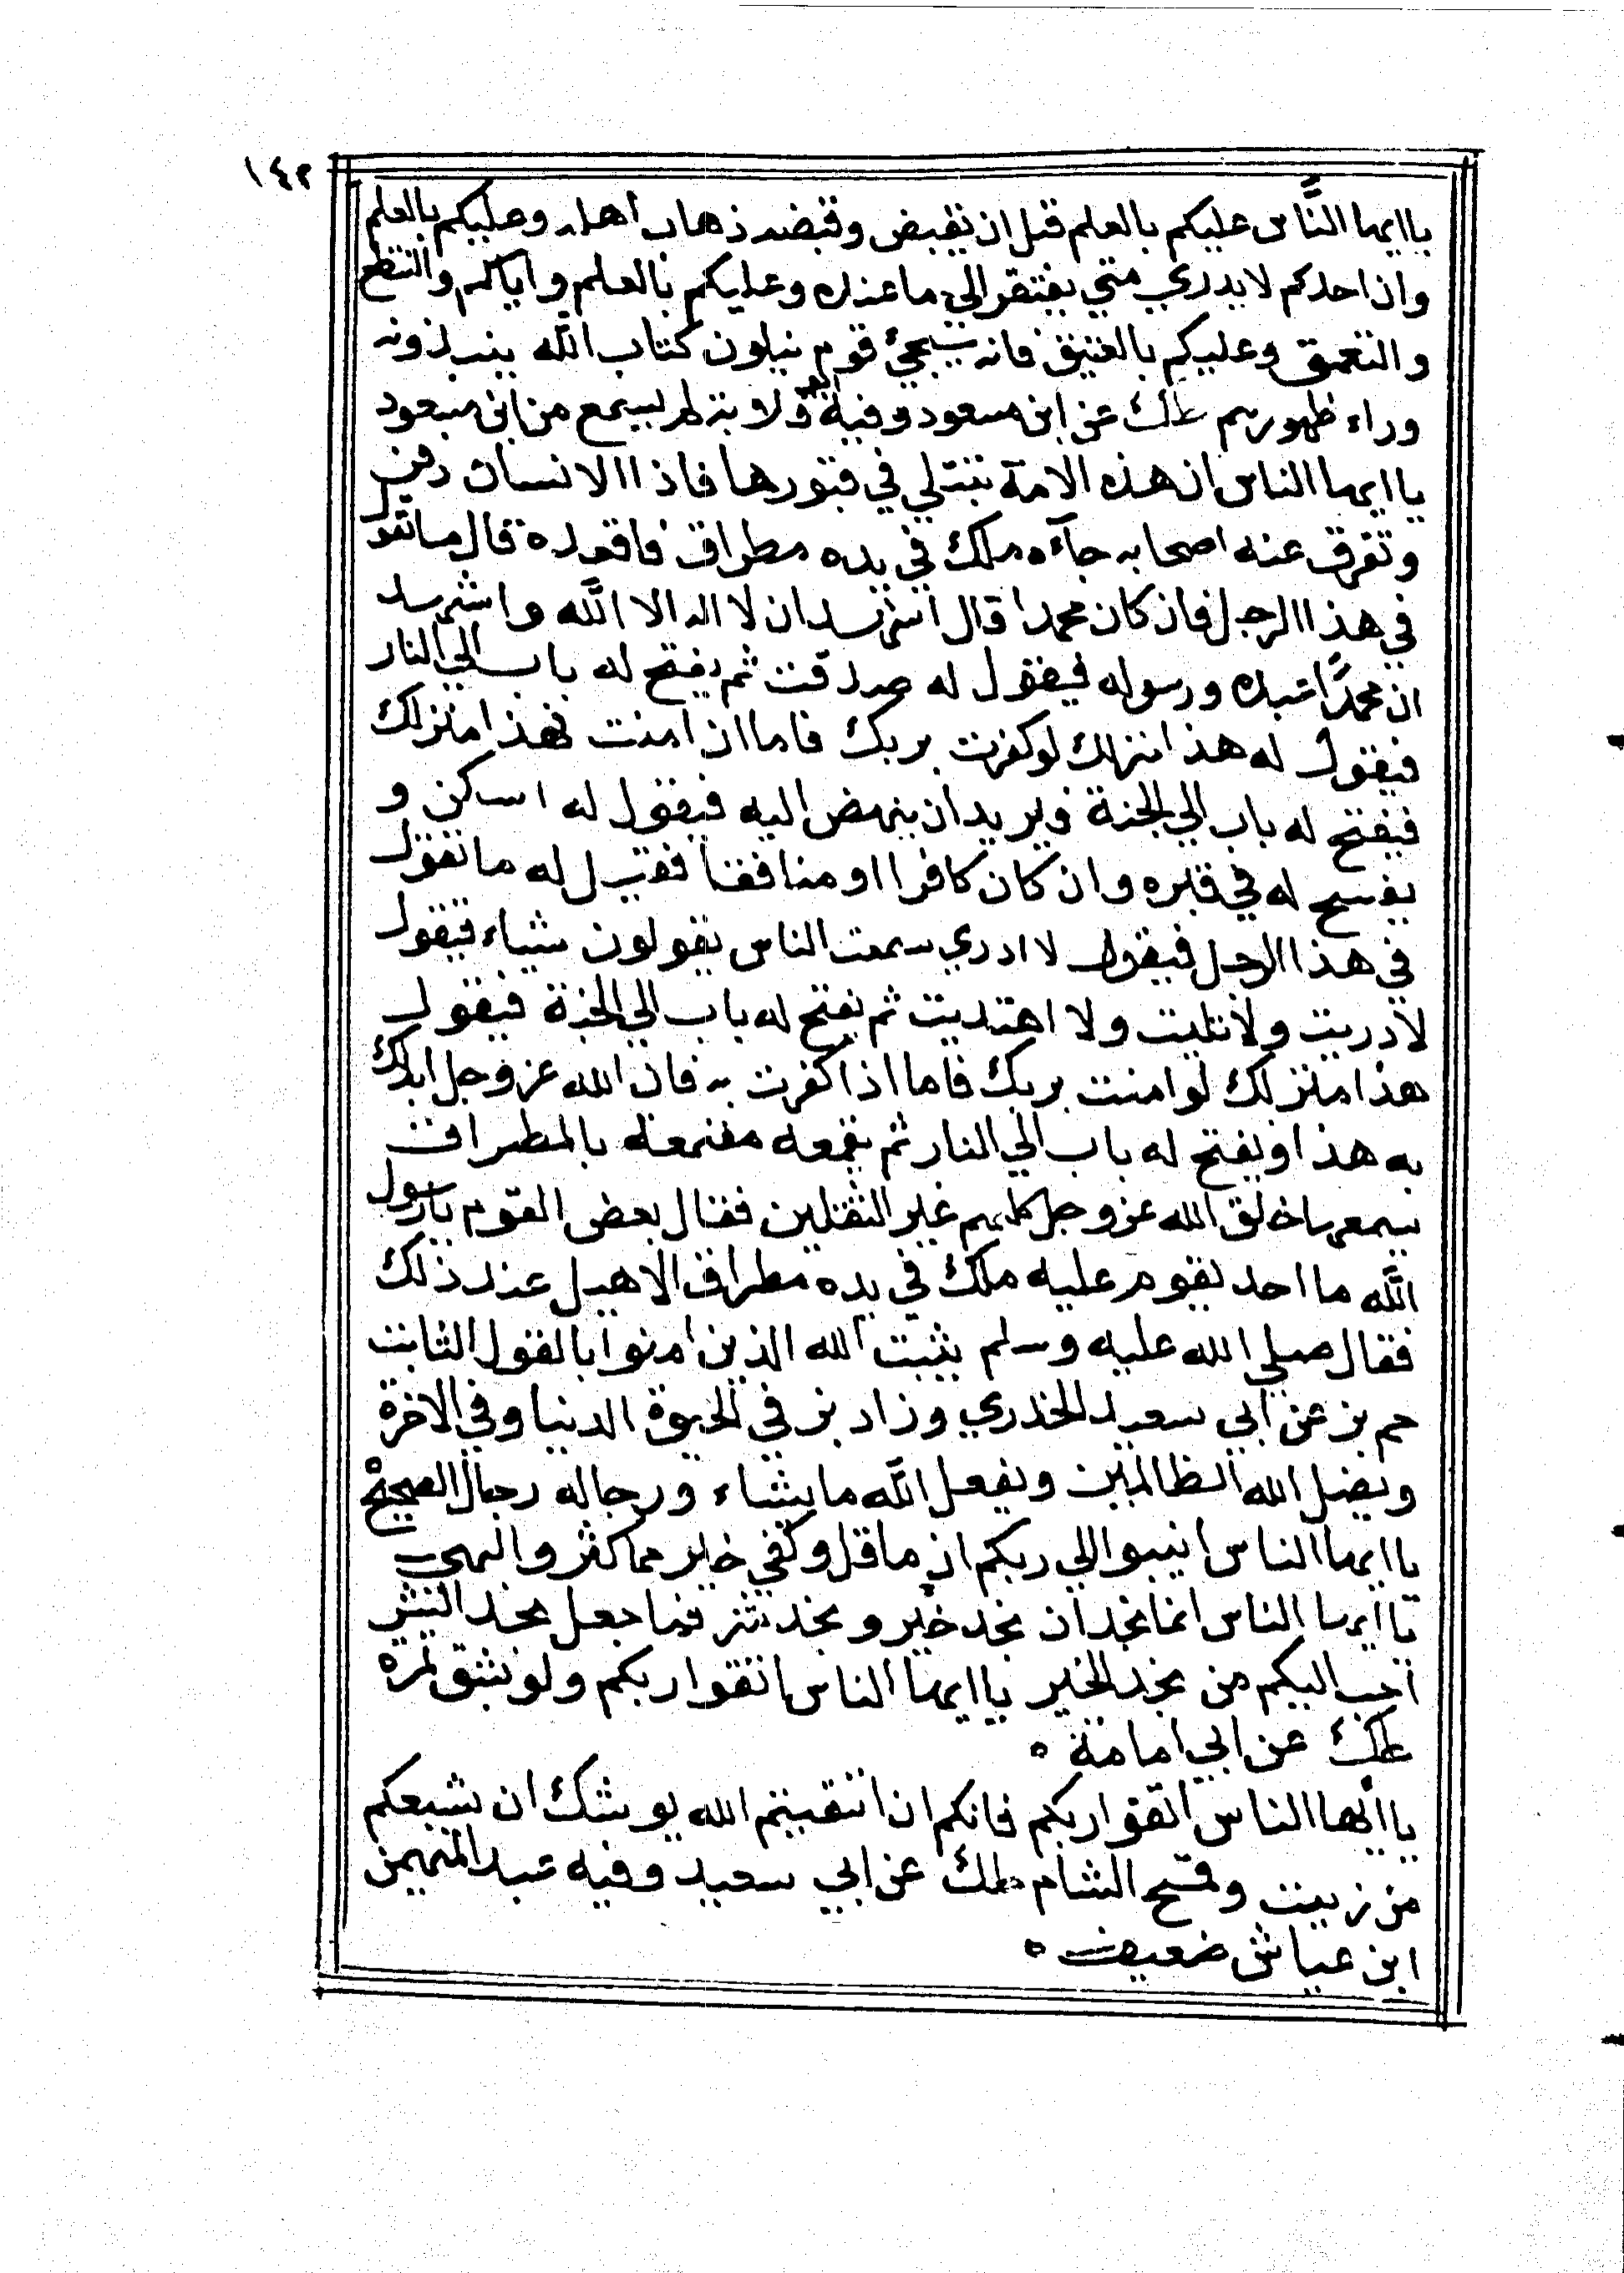 ١٤٢
يا ايها النَّاس عليكم بالعلم قبل ان يقبض وقبضه ذهاب اهله وعليكم بالعلم
وان احدكم لا يدري متي يفتقر الي ما عنده وعليكم بالعلم واياكم والتنطع
والتعمق وعليكم بالعتيق فانه سيجئ قوم يتلون كتاب الله ينبذونه
وراء ظهورهم طك عن ابن مسعود وفيه ابو قلابة لم يسمع من ابن مسعود
يا ايها الناس ان هذه الامة تبتلي في قبورها فاذا الانسان دفن
وتفرق عنه اصحابه جآءه ملك في يده مطراق فاقعده قال ما تقول
في هذا الرجل فان كان محمدا قال اشهد ان لا اله الا الله واشهد
ان محمدًا عبده ورسوله فيقول له صدقت ثم يفتح له باب الي النار
فيقول له هذا منزلك لو كفرت بربك فاما اذ امنت فهذا منزلك
فيفتح له باب الي الجنة فيريد ان ينهض اليه فيقول له اسكن و
يفسح له في قبره وان كان كافرا او منافقا فقيل له ما تقول
في هذا الرجل فيقول لا ادري سمعت الناس يقولون شياء فيقول
لا دريت ولا تليت ولا اهتديت ثم يفتح له باب الي الجنة فيقول
هذا منزلك لو امنت بربك فاما اذا كفرت به فان الله عز وجل ابدلك
به هذا ويفتح له باب الي النار ثم يقمعه مقمعة بالمطراق
يسمعها خلق الله عز وجل كلهم غير الثقلين فقال بعض القوم يا رسول
الله ما احد يقوم عليه ملك في يده مطراق الا هيل عند ذلك
فقال صلي الله عليه وسلم يثبت الله الذين امنوا بالقول الثابت
حم بز عن ابي سعيد الخدري وزاد بز في الحيوة الدنيا وفي الاخرة
ويضل الله الظالمين ويفعل الله ما يشاء ورجاله رجال الصحيح
يا ايها الناس انيبوا الي ربكم ان ما قل وكفي خير مما كثر والهي
يا ايها الناس انما نجدان نجد خير ونجد شر فما جعل نجد الشر
احب اليكم من نجد الخير يا ايها الناس اتقوا ربكم ولو بشق تمره
طك عن ابي امامة ه
يا ايها الناس اتقوا ربكم فانكم ان اتقيتم الله يوشك ان يشبعكم
من زيت وقمح الشام طك عن ابي سعيد وفيه عبد المهيمن
ابن عياش ضعيف ه